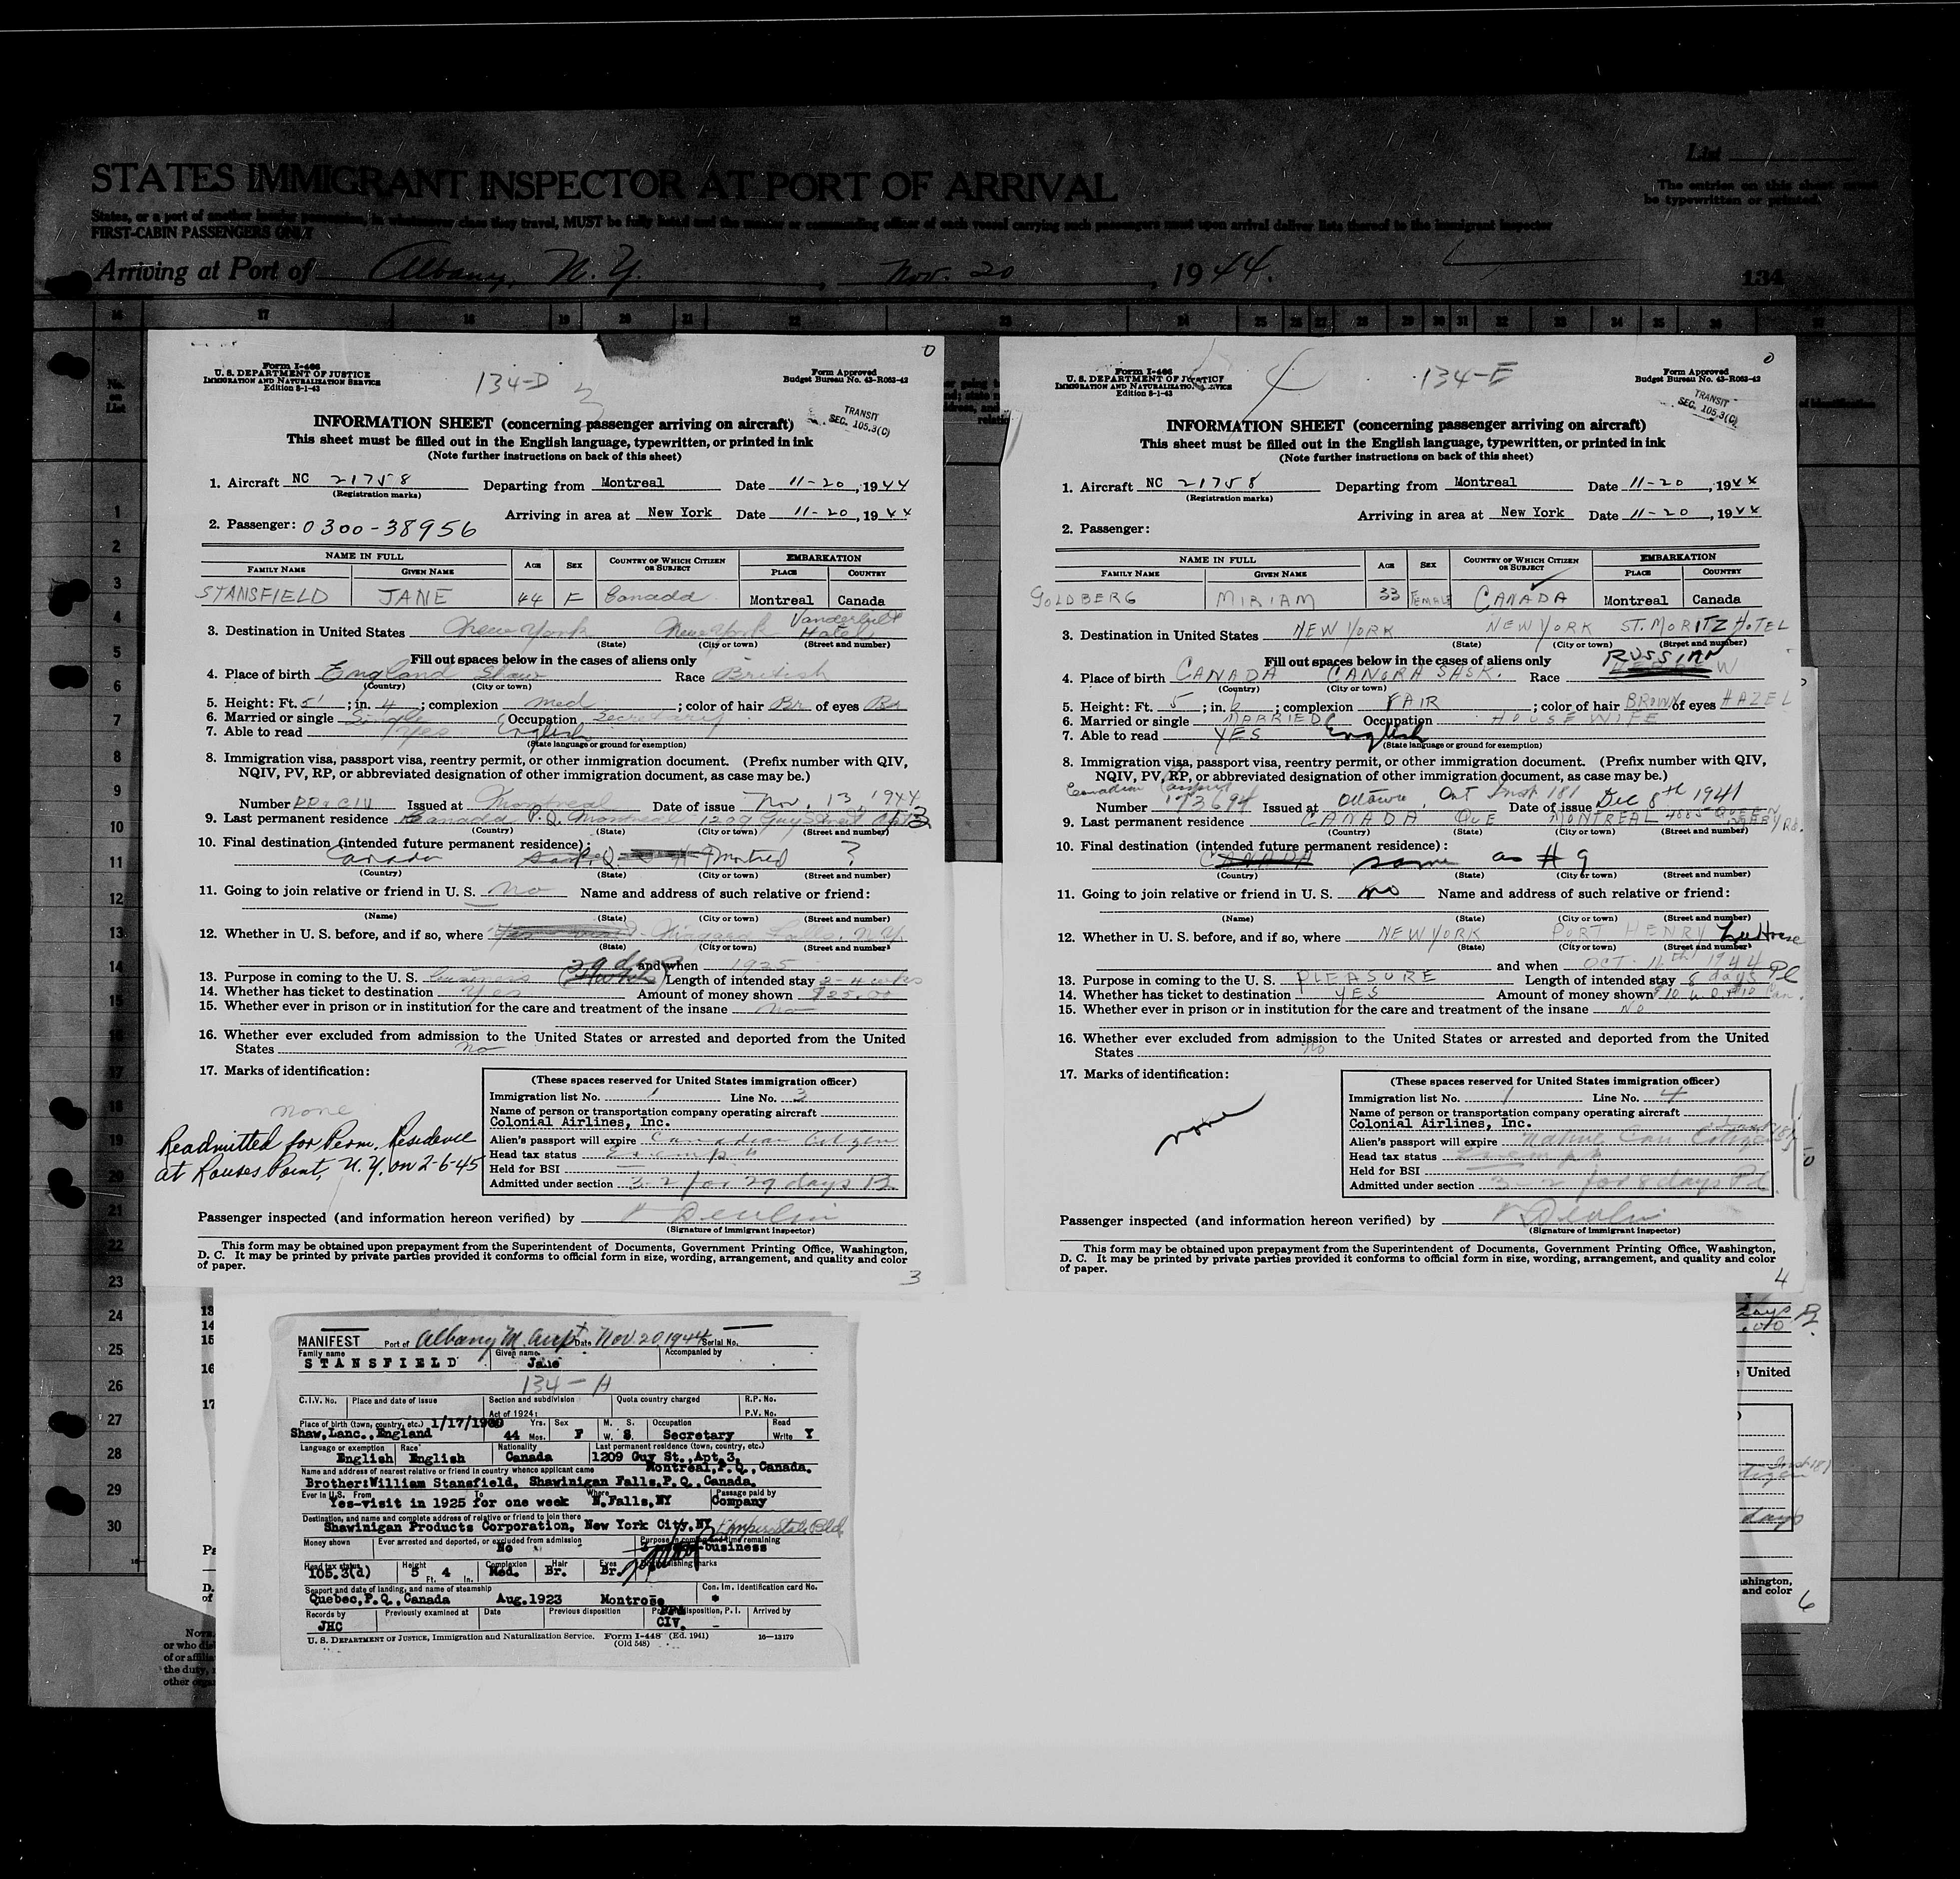 STATES IMMIGRANT INSPECTOR AT PORT OF ARRIVAL
List
The entries on this sheet must
be typewritten or printed.
States, or a port of another insular possession, in whatsoever class they travel, MUST be fully listed and the master or commanding officer of each vessel carrying such passengers must upon arrival deliver lists thereof to the immigrant inspector
FIRST-CABIN PASSENGERS ONLY
Arriving at Port of Albany, N.Y. , Nov. 20 , 1944.
134
16 17 18 19 20 21 22 23 24 25 26 27 28 29 30 31 32 33 34 35 36 37
No.
on
List
1
2
3
4
5
6
7
8
9
10
11
12
13
14
15
16
17
18
19
20
21
22
23
24
25
26
27
28
29
30
0
Form I-466
U. S. DEPARTMENT OF JUSTICE
IMMIGRATION AND NATURALIZATION SERVICE
Edition 8-1-43
134-D
3
Form Approved
Budget Bureau No. 43-R063-42
TRANSIT
SEC. 105.3(C)
INFORMATION SHEET (concerning passenger arriving on aircraft)
This sheet must be filled out in the English language, typewritten, or printed in ink
(Note further instructions on back of this sheet)
1. Aircraft NC 21758 Departing from Montreal Date 11-20, 1944
(Registration marks)
Arriving in area at New York Date 11-20, 1944
2. Passenger: 0300-38956
NAME IN FULL AGE SEX COUNTRY OF WHICH CITIZEN OR SUBJECT EMBARKATION
FAMILY NAME GIVEN NAME PLACE COUNTRY
STANSFIELD JANE 44 F Canada Montreal Canada
3. Destination in United States New York New York Vanderbilt Hotel
(State) (City or town) (Street and number)
Fill out spaces below in the cases of aliens only
4. Place of birth England Shaw Race British
(Country) (City or town)
5. Height: Ft. 5' ; in. 4 ; complexion med ; color of hair Br. of eyes Br
6. Married or single Single Occupation Secretary
7. Able to read Yes English
(State language or ground for exemption)
8. Immigration visa, passport visa, reentry permit, or other immigration document. (Prefix number with QIV,
NQIV, PV, RP, or abbreviated designation of other immigration document, as case may be.)
Number CIV Issued at Montreal Date of issue Nov. 13, 1944
9. Last permanent residence Canada P.Q. Montreal 1209 Guy Street Apt 3
(Country) (State) (City or town) (Street and number)
10. Final destination (intended future permanent residence):
Canada P.Q. Montreal ?
(Country) (State) (City or town) (Street and number)
11. Going to join relative or friend in U. S. No Name and address of such relative or friend:
(Name) (State) (City or town) (Street and number)
12. Whether in U. S. before, and if so, where Niagara Falls, N.Y.
(State) (City or town) (Street and number)
29 days and when 1925
13. Purpose in coming to the U. S. business Length of intended stay 3-4 wks
14. Whether has ticket to destination Yes Amount of money shown $25.00
15. Whether ever in prison or in institution for the care and treatment of the insane No
16. Whether ever excluded from admission to the United States or arrested and deported from the United
States No
17. Marks of identification:
none
Readmitted for Perm. Residence
at Rouses Point, N.Y. on 2-6-45
(These spaces reserved for United States immigration officer)
Immigration list No. 1 Line No. 3
Name of person or transportation company operating aircraft
Colonial Airlines, Inc.
Alien's passport will expire Canadian Citizen
Head tax status Exempt
Held for BSI
Admitted under section 3-2 for 29 days B.
Passenger inspected (and information hereon verified) by Devlin
(Signature of immigrant inspector)
This form may be obtained upon prepayment from the Superintendent of Documents, Government Printing Office, Washington,
D. C. It may be printed by private parties provided it conforms to official form in size, wording, arrangement, and quality and color
of paper.
3
0
Form I-466
U. S. DEPARTMENT OF JUSTICE
IMMIGRATION AND NATURALIZATION SERVICE
Edition 8-1-43
4
134-E
Form Approved
Budget Bureau No. 43-R063-42
TRANSIT
SEC. 105.3(C)
INFORMATION SHEET (concerning passenger arriving on aircraft)
This sheet must be filled out in the English language, typewritten, or printed in ink
(Note further instructions on back of this sheet)
1. Aircraft NC 21758 Departing from Montreal Date 11-20, 1944
(Registration marks)
Arriving in area at New York Date 11-20, 1944
2. Passenger:
NAME IN FULL AGE SEX COUNTRY OF WHICH CITIZEN OR SUBJECT EMBARKATION
FAMILY NAME GIVEN NAME PLACE COUNTRY
GOLDBERG MIRIAM 33 FEMALE CANADA Montreal Canada
3. Destination in United States NEW YORK NEW YORK ST. MORITZ HOTEL
(State) (City or town) (Street and number)
Fill out spaces below in the cases of aliens only
4. Place of birth CANADA CANORA SASK. Race RUSSIAN
(Country) (City or town)
5. Height: Ft. 5 ; in. 6 ; complexion FAIR ; color of hair BROWN of eyes HAZEL
6. Married or single MARRIED Occupation HOUSEWIFE
7. Able to read YES English
(State language or ground for exemption)
8. Immigration visa, passport visa, reentry permit, or other immigration document. (Prefix number with QIV,
NQIV, PV, RP, or abbreviated designation of other immigration document, as case may be.)
Canadian Passport
Number 173694 Issued at Ottawa, Ont Date of issue Dec 8th 1941
9. Last permanent residence CANADA QUE MONTREAL 4885 QUEEN MARY RD.
(Country) (State) (City or town) (Street and number)
10. Final destination (intended future permanent residence):
CANADA same as # 9
(Country) (State) (City or town) (Street and number)
11. Going to join relative or friend in U. S. no Name and address of such relative or friend:
(Name) (State) (City or town) (Street and number)
12. Whether in U. S. before, and if so, where NEW YORK PORT HENRY Lee House
(State) (City or town) (Street and number)
and when OCT. 1944
13. Purpose in coming to the U. S. PLEASURE Length of intended stay 8 days Pl
14. Whether has ticket to destination YES Amount of money shown
15. Whether ever in prison or in institution for the care and treatment of the insane No
16. Whether ever excluded from admission to the United States or arrested and deported from the United
States No
17. Marks of identification:
none
(These spaces reserved for United States immigration officer)
Immigration list No. 1 Line No. 4
Name of person or transportation company operating aircraft
Colonial Airlines, Inc.
Alien's passport will expire Native Can. Citizen
Head tax status Exempt
Held for BSI
Admitted under section 3-2 for 8 days Pl.
Passenger inspected (and information hereon verified) by Devlin
(Signature of immigrant inspector)
This form may be obtained upon prepayment from the Superintendent of Documents, Government Printing Office, Washington,
D. C. It may be printed by private parties provided it conforms to official form in size, wording, arrangement, and quality and color
of paper.
4
MANIFEST Port of Albany M. Airpt Date Nov. 20, 1944 Serial No.
Family name Given name Accompanied by
STANSFIELD Jane
134-H
C.I.V. No. Place and date of issue Section and subdivision Quota country charged R.P. No.
Act of 1924: P.V. No.
Place of birth (town, country, etc.) 1/17/1900 Yrs. Sex M. S. Occupation Read
Shaw, Lanc., England 44 Mos. F W. S. Secretary Write Y
Language or exemption Race Nationality Last permanent residence (town, country, etc.)
English English Canada 1209 Guy St., Apt. 3,
Montreal, P.Q., Canada.
Name and address of nearest relative or friend in country whence applicant came
Brother: William Stansfield, Shawinigan Falls, P.Q., Canada.
Ever in U.S. From To Where Passage paid by
Yes-visit in 1925 for one week N.Falls, NY Company
Destination, and name and complete address of relative or friend to join there
Shawinigan Products Corporation, New York City, NY Empire State Bld
Money shown Ever arrested and deported, or excluded from admission Purpose in coming and time remaining
No business
Head tax status Height Complexion Hair Eyes Distinguishing marks
105.3(d) 5 Ft. 4 In. Med. Br. Br.
Seaport and date of landing, and name of steamship Con. Im. Identification card No.
Quebec, P.Q., Canada Aug. 1923 Montrose
Records by Previously examined at Date Previous disposition Present disposition, P. I. Arrived by
JHC CIV.
U. S. DEPARTMENT OF JUSTICE, Immigration and Naturalization Service. Form I-448 (Ed. 1941) 16-13179
(Old 548)
United
days
shington,
and color
6
13
14
15
16
17